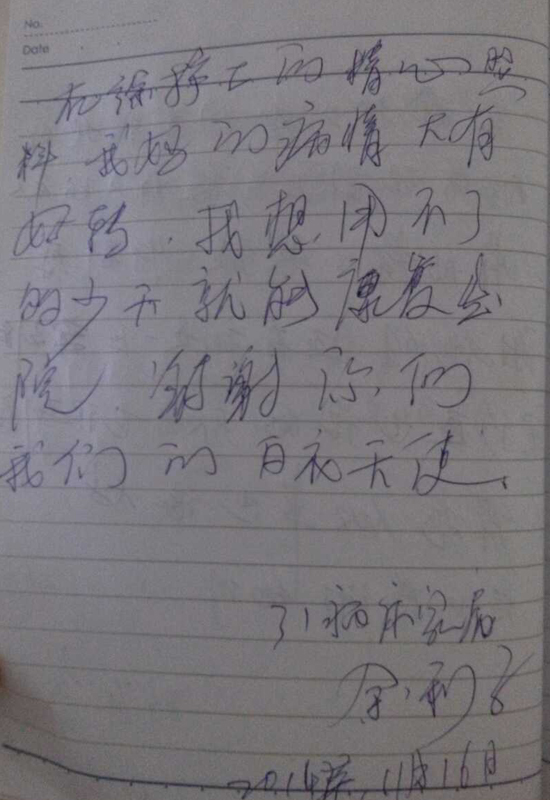 No.
Date
和徐护士的精心照
料.我妈的病情大有
好转.我想用不了
多少天就能康复出
院.谢谢你们
我们的白衣天使.
31病床家属
余利
2014年.11月16日